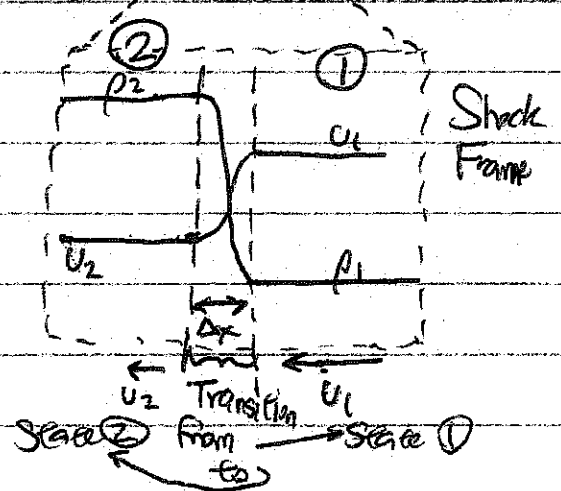 ② ①
ρ2 U1 Shock
Frame
U2 ρ1
Δx
U2 Transition U1
State ② from State ①
to